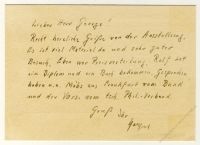 Lieber Herr George!
Recht herzliche Grüße von der Ausstellung.
Es ist viel Material da und sehr guter
Besuch. Eben war Preisverteilung. Ralf hat
ein Diplom und ein Buch bekommen. Gesprochen
haben u.a. Möbs aus Frankfurt vom Bund
und der Vors. vom tsch. Phil.-Verband.
Gruß